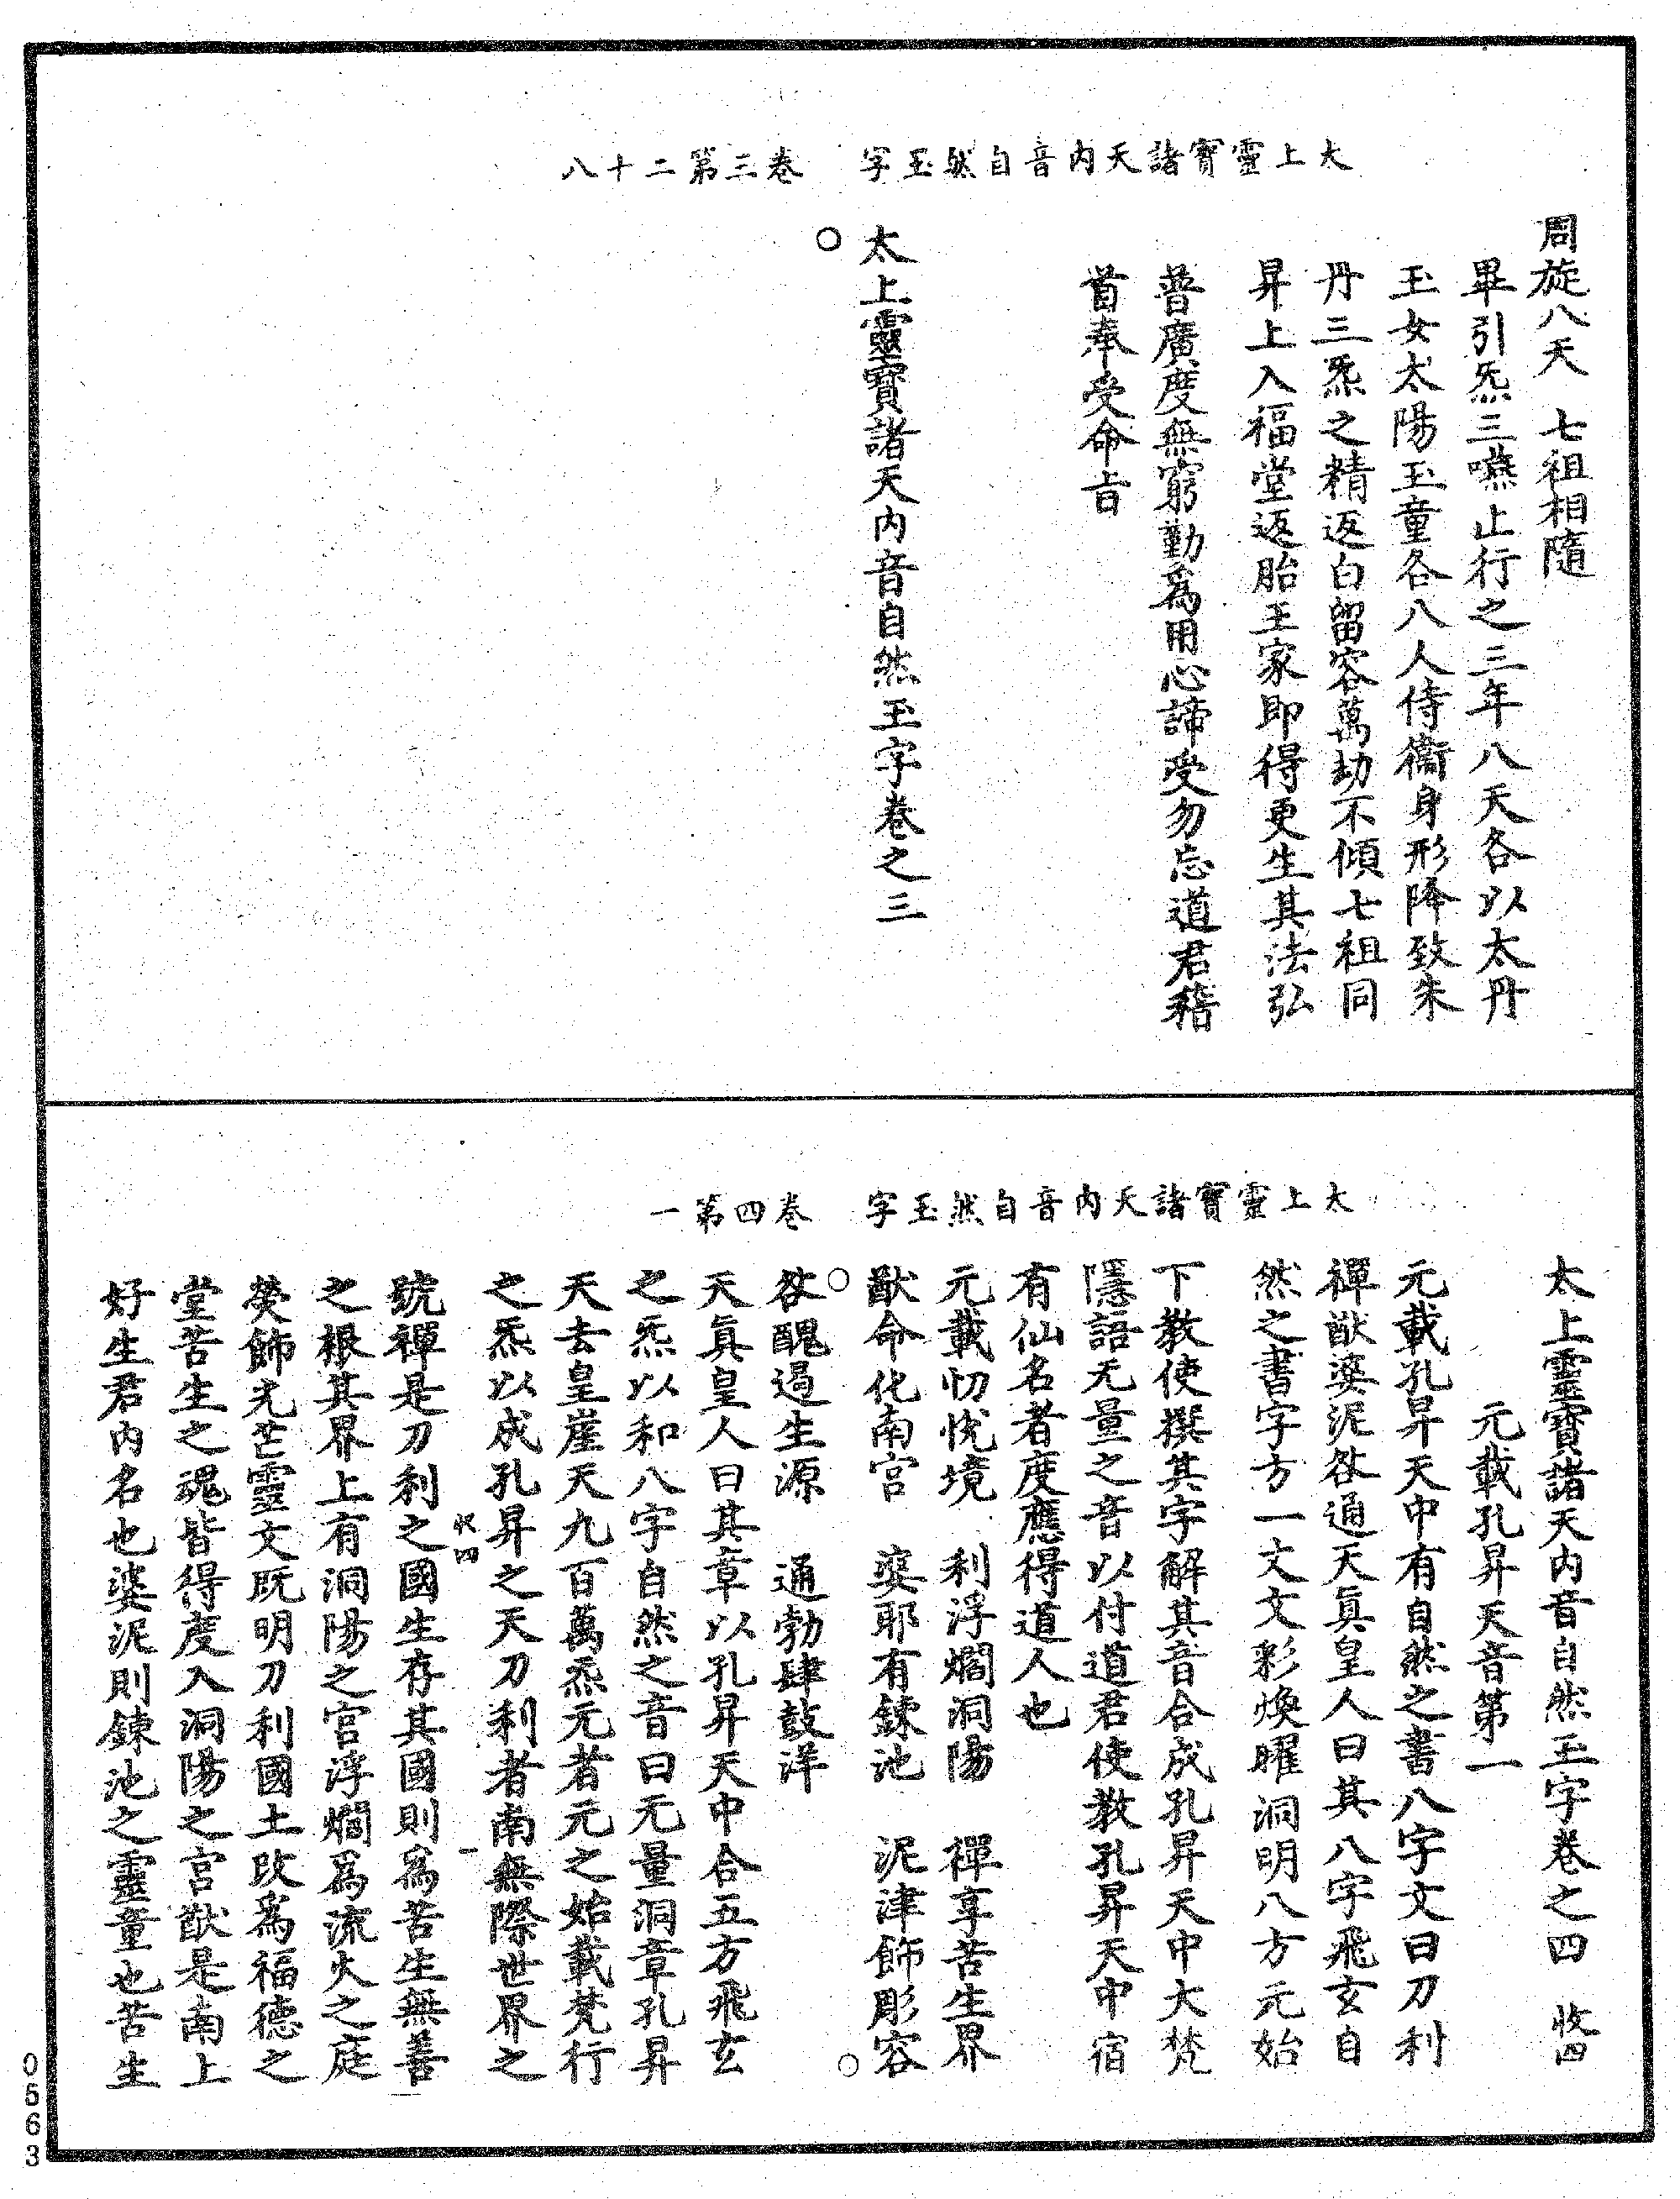 太上靈寶諸天內音自然玉字　卷三第二十八
周旋八天　七祖相隨
畢引炁三嚥止行之三年八天各以太丹
玉女太陽玉童各八人侍衞身形降致朱
丹三炁之精返白留容萬劫不傾七祖同
昇上入福堂返胎王家即得更生其法弘
普廣度無窮勤爲用心諦受勿忘道君稽
首奉受命旨
太上靈寶諸天內音自然玉字卷之三
太上靈寶諸天內音自然玉字　卷四第一
太上靈寶諸天內音自然玉字卷之四　收四
元載孔昇天音第一
元載孔昇天中有自然之書八字文曰刀利
禪猷婆泥咎通天眞皇人曰其八字飛玄自
然之書字方一丈文彩煥曜洞明八方元始
下教使撰其字解其音合成孔昇天中大梵
隱語无量之音以付道君使教孔昇天中宿
有仙名者度應得道人也
元載忉恱境　利浮爓洞陽　禪享苦生界
猷命化南宮　婆耶有錬池　泥津飾彫容
咎醜過生源　通勃肆鼓洋
天眞皇人曰其章以孔昇天中合五方飛玄
之炁以和八字自然之音曰无量洞章孔昇
天去皇崖天九百萬炁元者元之始載梵行
之炁以成孔昇之天刀利者南無際世界之
收四　一
號禪是刀利之國生存其國則爲苦生無善
之根其界上有洞陽之宮浮爓爲流火之庭
熒飾光芒靈文既明刀利國土改爲福德之
堂苦生之魂皆得度入洞陽之宮猷是南上
好生君內名也婆泥則錬池之靈童也苦生
0563